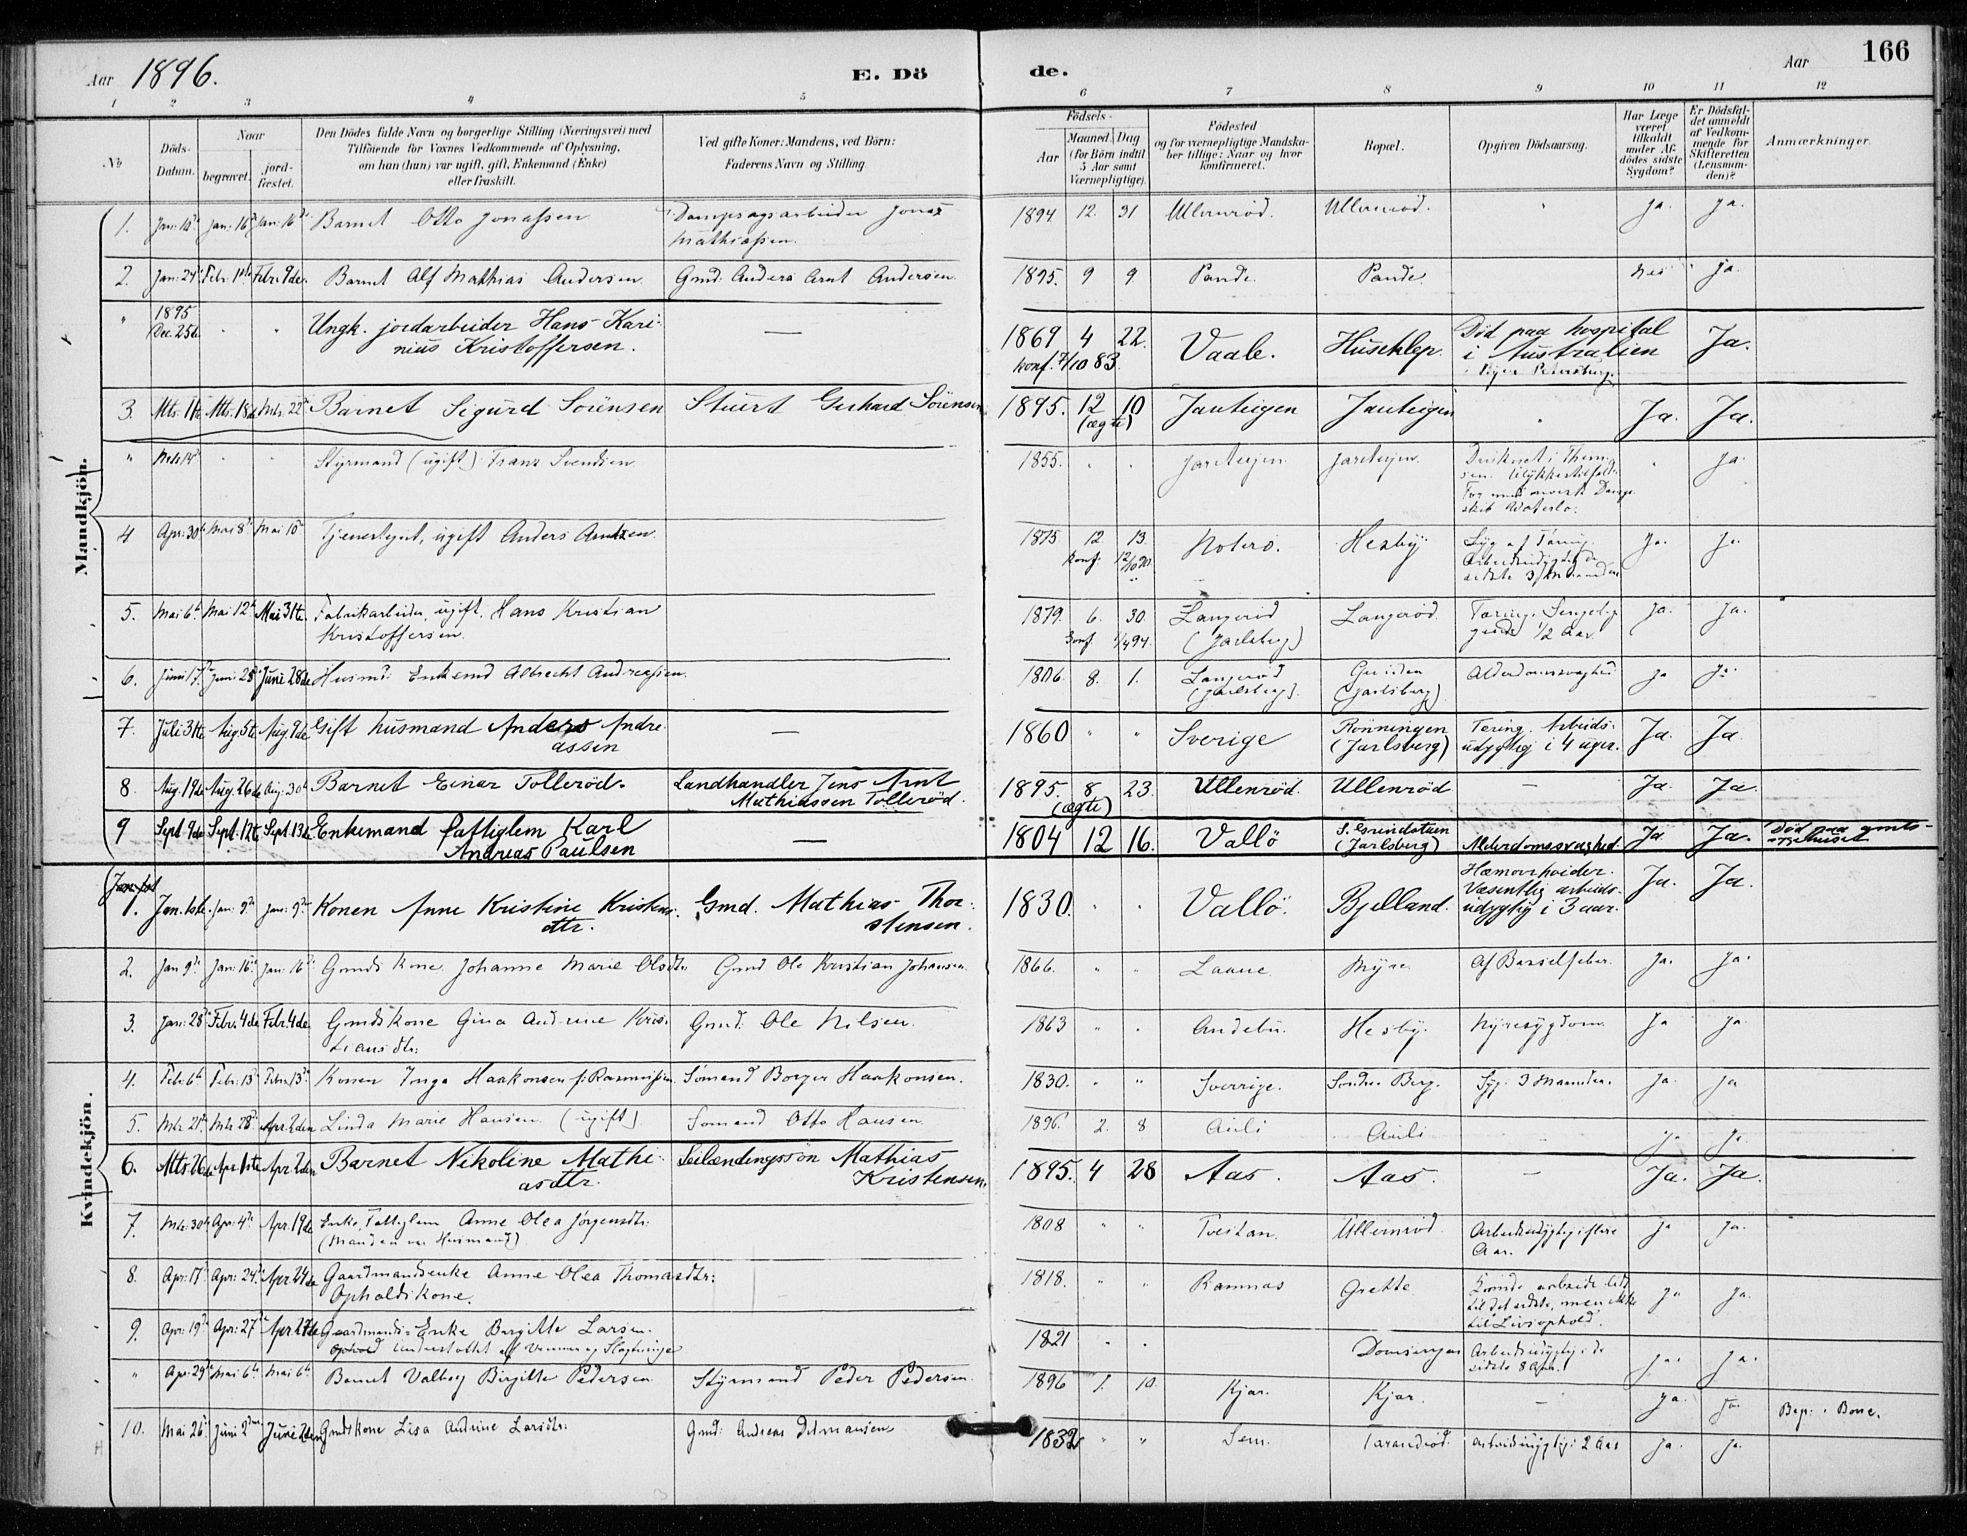 166
Aar 1896. E. Dö de. Aar
1 2 3 4 5 6 7 8 9 10 11 12
No
Döds-Datum.
Naar
begravet.
jord-fæstet.
Den Dödes fulde Navn og borgerlige Stilling (Næringsvei) med
Tilföiende for Voxnes Vedkommende af Oplysning,
om han (hun) var ugift, gift, Enkemand (Enke)
eller fraskilt.
Ved gifte Koner: Mandens, ved Börn:
Faderens Navn og Stilling
Födsels-
Aar
Maaned. Dag
(for Börn indtil
5 Aar samt
Værnepligtige).
Födested
og for værnepligtige Mandska-
ber tillige: Naar og hvor
konfirmeret.
Bopæl.
Opgiven Dödsaarsag.
Har Læge
været
tilkaldt
under Af-
dödes sidste
Sygdom?
Er Dödsfal-
det anmeldt
af Vedkom-
mende for
Skifteretten
(Lensman-
den)?
Anmærkninger.
Mandkjön.
1. Jan: 16 Jan: 16 Barnet Otto Jonassen Dampsagsarbeider Jonas 1894 12. 31 Ullenrød. Ullenrød. " Ja. Ja.
Mathiassen.
2. Jan: 24 Febr: 9de. Barnet Alf Mathias Andersen Gmd. Anders Arnt Andersen. 1895. 9 9. Pande. Pande. Nei Ja.
" 1895 Dec. 25de. " " Ungk. jordarbeider Hans Kari- — 1869 4 22. Vaale. Huseklep. Död paa hospital Ja.
nius Kristoffersen. konf. 7/10 83. i Australien
3. Mts. 11te Mts. 18de Mts. 22 Barnet Sigurd Sörensen Stuert Gerhard Sörensen 1895. 12 10 Jarteigen Jarteigen " Ja. Ja.
(ægte)
" Mts 14 " " Styrmand (ugift) Franz Svendsen 1855. " " Jarteigen Jarteigen. Druknet i Them- " Ja.
sen. Ulykkestilfælde.
4 Apr: 30 Mai 8 Mai 10 Tjenestegut, ugift Anders Arntzen. 1875 12 13 Noterö. Hesby Syg af Tæring. Ja. Ja.
konf.
5. Mai 6 Mai 12 Mai 31te. Fabrikarbeider, ugift. Hans Kristian 1879. 6. 30. Langeröd Langeröd. Tæring. Sengelig- Ja. Ja.
Kristoffersen. (Jarlsberg) gende 1/2 Aar.
6. Juni 17 Juni 28de Husmd: Enkemd Albrecht Andreassen. 1806. 8. 1. Langeröd Alderdomssvaghed Ja Ja.
(Jarlsberg). (Jarlsberg).
7. Juli 31te. Aug. 5te. Aug. 9de. Gift husmand Anders Andre- — 1860 " " Sverige Rönningen Tæring. Arbeids- Ja. Ja.
assen (Jarlsberg) udygtig i 4 uger.
8. Aug. 19de Aug. 26de Aug. 30 Barnet Einar Tolleröd. Landhandler Jens Arnt 1895. 8 23. Ullenröd. Ullenröd — Ja. Ja.
Mathiassen Tolleröd. (ægte)
9 Sept. 9de Sept. 12te. Sept. 13de Enkemand fattiglem Karl — 1804 12 16. Vallö S. Grindstuen Alderdomssvaghed. Ja. Ja. Död paa amts-
Andreas Paulsen (Jarlsberg) sygehuset
Kvindekjön.
1. Jan. 1ste. Jan: 9 Jan: 9 Konen Anne Kristine Kristens- Gmd. Mathias Thor- 1830. " " Vallö. Bjelland. Hæmorrhoider. Ja. Ja.
dtr. stensen. Væsentlig arbeids-
udygtig i 3 aar.
2. Jan 9 Jan: 16 Jan: 16 Gmds kone. Johanne Marie Olsdtr. Gmd Ole Kristian Johansen. 1866. " " Laane Myre. Af Barselfeber. Ja. Ja.
3. Jan: 28 Febr. 4de Febr. 4de. Gmds kone Gina Andrine Kris- Gmd: Ole Nilsen. 1863 " " Andebu. Hesby. Nyresygdom. Ja Ja.
tiansdtr:
4. Febr: 6 Febr: 13 Febr: 13 Konen Inga Haakonsen f: Rasmussen. Sömand Borger Haakonsen. 1830. " " Sverrige. Söndre Berg. Syg. 3 Maaneder. Ja. Ja
5. Mts 21 Mts 28 Apr. 2den Linda Marie Hansen. (ugift) Sömand Otto Hansen. 1896. 2. 8 Auli Auli Ja. Ja.
6. Mts 26de Apr. 1ste Apr. 2den Barnet Nikoline Mathi- Seilændingssön Mathias 1895. 4 28 Aas. Aas. — Ja. Ja.
asdtr. Kristensen.
7. Mts: 30 Apr. 4 Apr. 19de Enke, Fattiglem Anne Olea Jörgensdtr: 1808 " " Tveitan. Ullenröd. Arbeidsudygtig i flere Ja Ja.
(Manden var Husmand) Aar.
8. Apr: 17 Apr: 24 Apr. 24de Gaardmandsenke Anne Olea Thomasdtr: 1818. " " Ramnæs Grette Kunde arbeide lidt Ja Ja.
Opholdskone. til det sidste, men ikke
til Livsophold.
9. Apr: 19 Apr: 27 Apr 27de Gaardmands-Enke Birgitte Larsen. 1821 " " Arbeidsudygtig i de Ja. Ja.
understöttet af Venner og Slægtninge sidste 8 Aar.
" Apr: 29 Mai 6 Mai 6 Barnet Valborg Birgitte Pedersen Styrmand Peder Pedersen. 1896 1. 10. Kjær. Kjær. — Ja. Ja.
10. Mai 26 Juni 2 Juni 2den Gmdskone Lisa Andrine Larsdtr: Gmd: Andreas 1832 " " Sem. arbeidsudygtig i 2 Aar Ja. Ja.